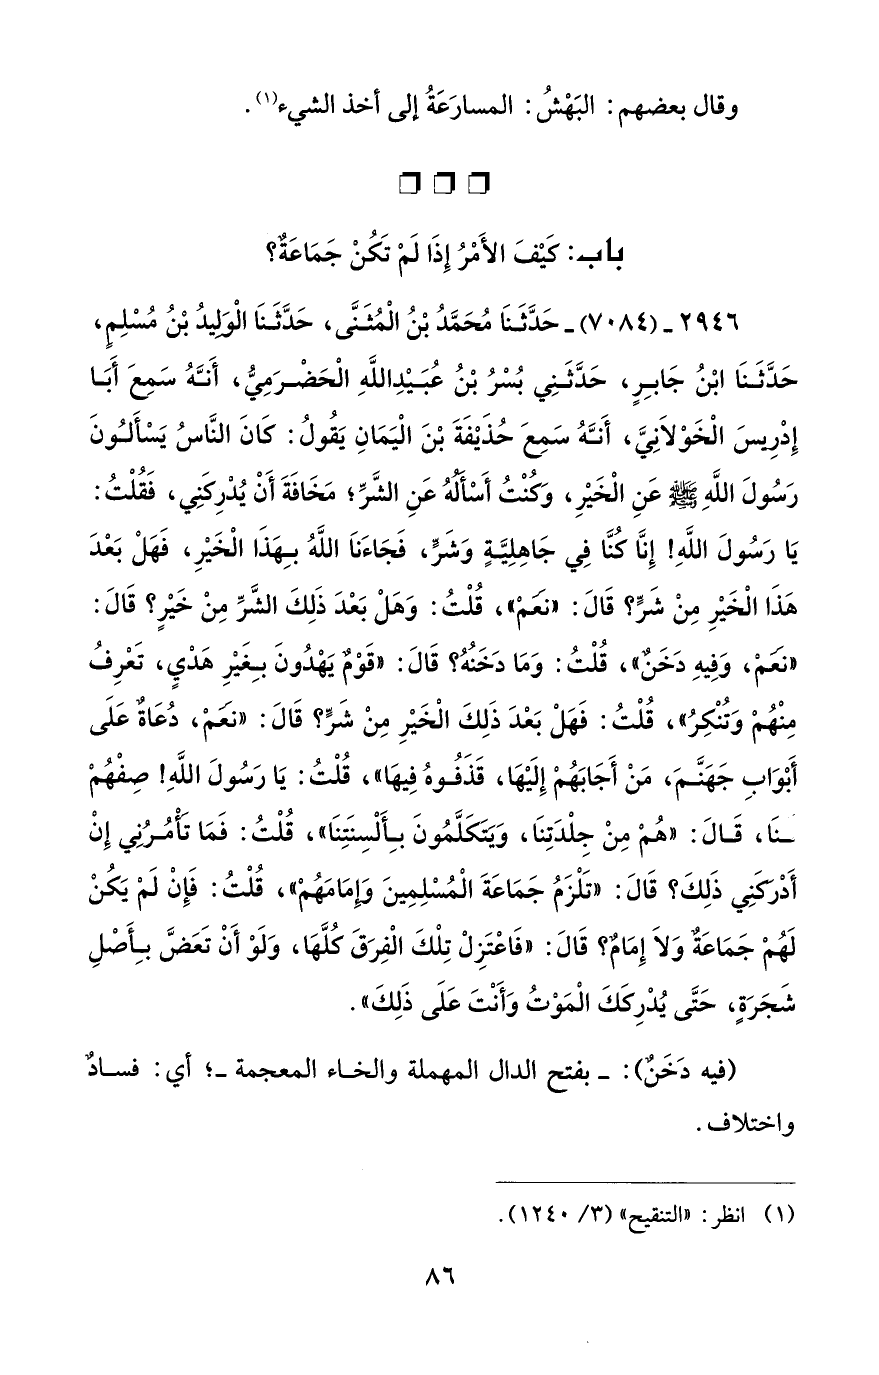 وقال بعضهم: البَهْشُ: المسارَعَةُ إلى أخذ الشيء(١).
باب: كَيْفَ الأَمْرُ إِذَا لَمْ تَكُنْ جَمَاعَةٌ؟
٢٩٤٦ ـ (٧٠٨٤) ـ حَدَّثَنَا مُحَمَّدُ بْنُ الْمُثَنَّى، حَدَّثَنَا الْوَلِيدُ بْنُ مُسْلِمٍ،
حَدَّثَنَا ابْنُ جَابِرٍ، حَدَّثَنِي بُسْرُ بْنُ عُبَيْدِاللَّهِ الْحَضْرَمِيُّ، أَنَّهُ سَمِعَ أَبَا
إِدْرِيسَ الْخَوْلاَنِيَّ، أَنَّهُ سَمِعَ حُذَيْفَةَ بْنَ الْيَمَانِ يَقُولُ: كَانَ النَّاسُ يَسْأَلُونَ
رَسُولَ اللَّهِ ﷺ عَنِ الْخَيْرِ، وَكُنْتُ أَسْأَلُهُ عَنِ الشَّرِّ؛ مَخَافَةَ أَنْ يُدْرِكَنِي، فَقُلْتُ:
يَا رَسُولَ اللَّهِ! إِنَّا كُنَّا فِي جَاهِلِيَّةٍ وَشَرٍّ، فَجَاءَنَا اللَّهُ بِهَذَا الْخَيْرِ، فَهَلْ بَعْدَ
هَذَا الْخَيْرِ مِنْ شَرٍّ؟ قَالَ: «نَعَمْ»، قُلْتُ: وَهَلْ بَعْدَ ذَلِكَ الشَّرِّ مِنْ خَيْرٍ؟ قَالَ:
«نَعَمْ، وَفِيهِ دَخَنٌ»، قُلْتُ: وَمَا دَخَنُهُ؟ قَالَ: «قَوْمٌ يَهْدُونَ بِغَيْرِ هَدْيٍ، تَعْرِفُ
مِنْهُمْ وَتُنْكِرُ»، قُلْتُ: فَهَلْ بَعْدَ ذَلِكَ الْخَيْرِ مِنْ شَرٍّ؟ قَالَ: «نَعَمْ، دُعَاةٌ عَلَى
أَبْوَابِ جَهَنَّمَ، مَنْ أَجَابَهُمْ إِلَيْهَا، قَذَفُوهُ فِيهَا»، قُلْتُ: يَا رَسُولَ اللَّهِ! صِفْهُمْ
ـنَا، قَالَ: «هُمْ مِنْ جِلْدَتِنَا، وَيَتَكَلَّمُونَ بِأَلْسِنَتِنَا»، قُلْتُ: فَمَا تَأْمُرُنِي إِنْ
أَدْرَكَنِي ذَلِكَ؟ قَالَ: «تَلْزَمُ جَمَاعَةَ الْمُسْلِمِينَ وَإِمَامَهُمْ»، قُلْتُ: فَإِنْ لَمْ يَكُنْ
لَهُمْ جَمَاعَةٌ وَلاَ إِمَامٌ؟ قَالَ: «فَاعْتَزِلْ تِلْكَ الْفِرَقَ كُلَّهَا، وَلَوْ أَنْ تَعَضَّ بِأَصْلِ
شَجَرَةٍ، حَتَّى يُدْرِكَكَ الْمَوْتُ وَأَنْتَ عَلَى ذَلِكَ».
(فيه دَخَنٌ): ـ بفتح الدال المهملة والخاء المعجمة ـ؛ أي: فسادٌ
واختلاف.
(١) انظر: «التنقيح» (٣/ ١٢٤٠).
٨٦